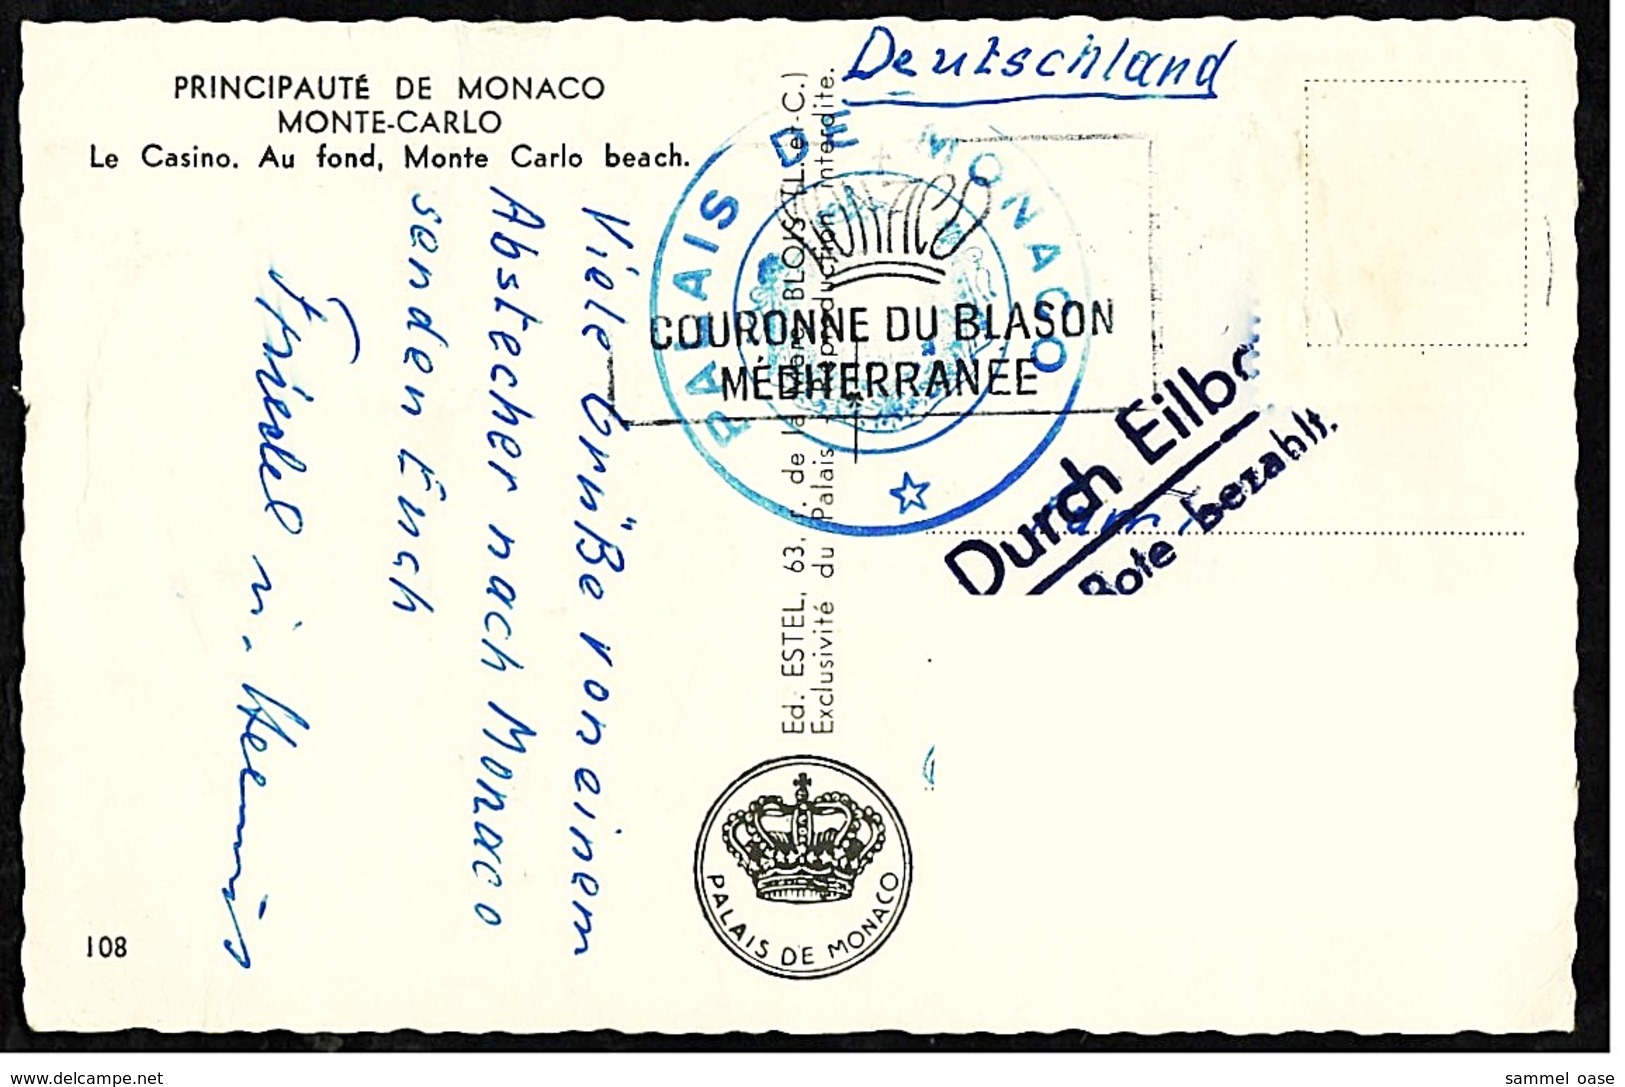 PRINCIPAUTÉ DE MONACO
MONTE-CARLO
Le Casino. Au fond, Monte Carlo beach.
Viele Grüße von einem
Abstecher nach Monaco
senden Euch
Friedel u.
108
Ed. ESTEL, 63, r. de la BLOIS (L.-et-C.)
Exclusivité du Palais - Reproduction interdite.
PALAIS DE MONACO
Deutschland
PALAIS DE MONACO
MONACO
COURONNE DU BLASON
MÉDITERRANÉE
Durch Eilbo
Bote bezahlt.
www.delcampe.net
sammel oase